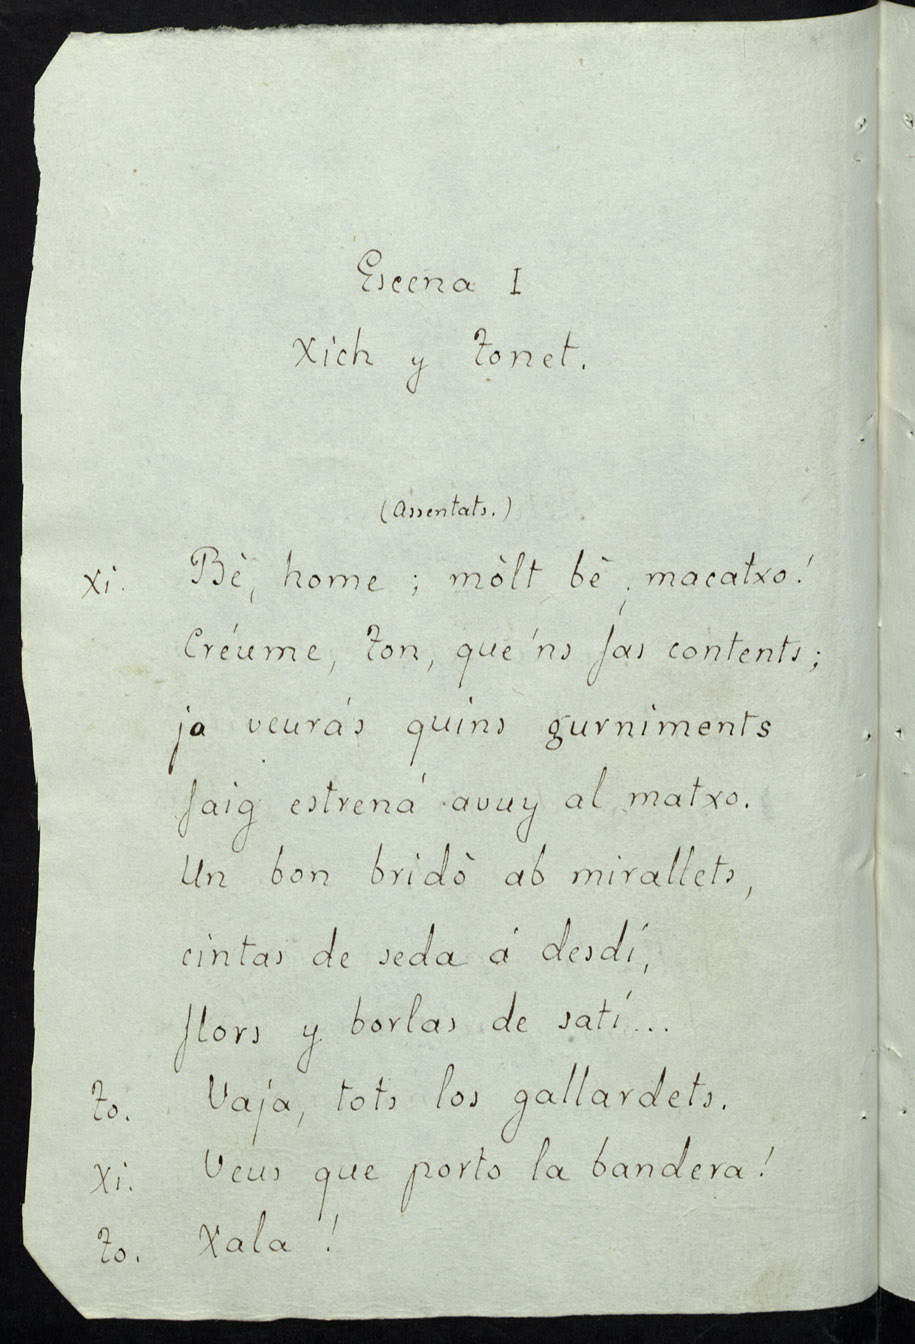 Escena I
Xich y Tonet.
(Assentats.)
Xi. Bè, home; mòlt bè, macatxo!
Créume, Ton, que'ns fas contents;
ja veurás quins gurniments
faig estrená avuy al matxo.
Un bon bridò ab mirallets,
cintas de seda á desdí,
flors y borlas de satí...
To. Vaja, tots los gallardets.
Xi. Veus que porto la bandera!
To. Xala!